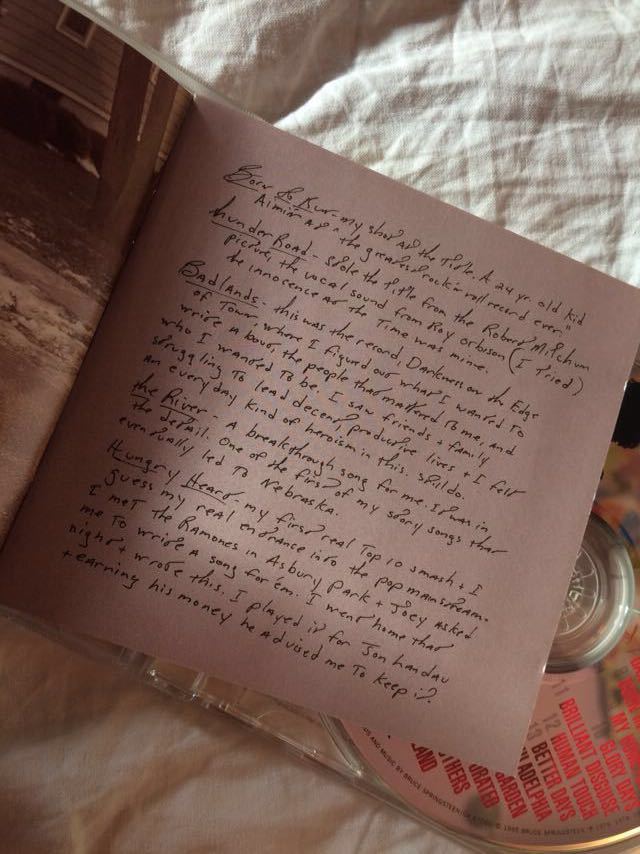 Born to Run - my shot at the title. A 24 yr. old kid
Aimin at "the greatest rock'n roll record ever"
thunder Road - Stole the title from the Robert Mitchum
picture, the vocal sound from Roy Orbison (I tried)
the innocence at the Time was mine.
Badlands - this was the record, Darkness on the Edge
of Town, where I figured out what I wanted to
write about, the people that mattered To me, and
who I wanted To be. I saw friends + family
struggling To lead decent, productive lives + I felt
an everyday kind of heroism in this. Still do.
the River - A breakthrough song for me. It was in
the detail. One of the first of my story songs that
eventually led to Nebraska.
Hungry Heart, my first real Top 10 smash + I
guess my real entrance into the pop mainstream.
I met the Ramones in Asbury Park + Joey asked
me To write a song for em. I went home that
night + wrote this. I played it for Jon Landau
+ earning his money he advised me To keep it.
GLORY DAYS
11 BRILLIANT DISGUISE
12 HUMAN TOUCH
13 BETTER DAYS
GARDEN
OTHERS
AND MUSIC BY BRUCE SPRINGSTEEN
1995 BRUCE SPRINGSTEEN